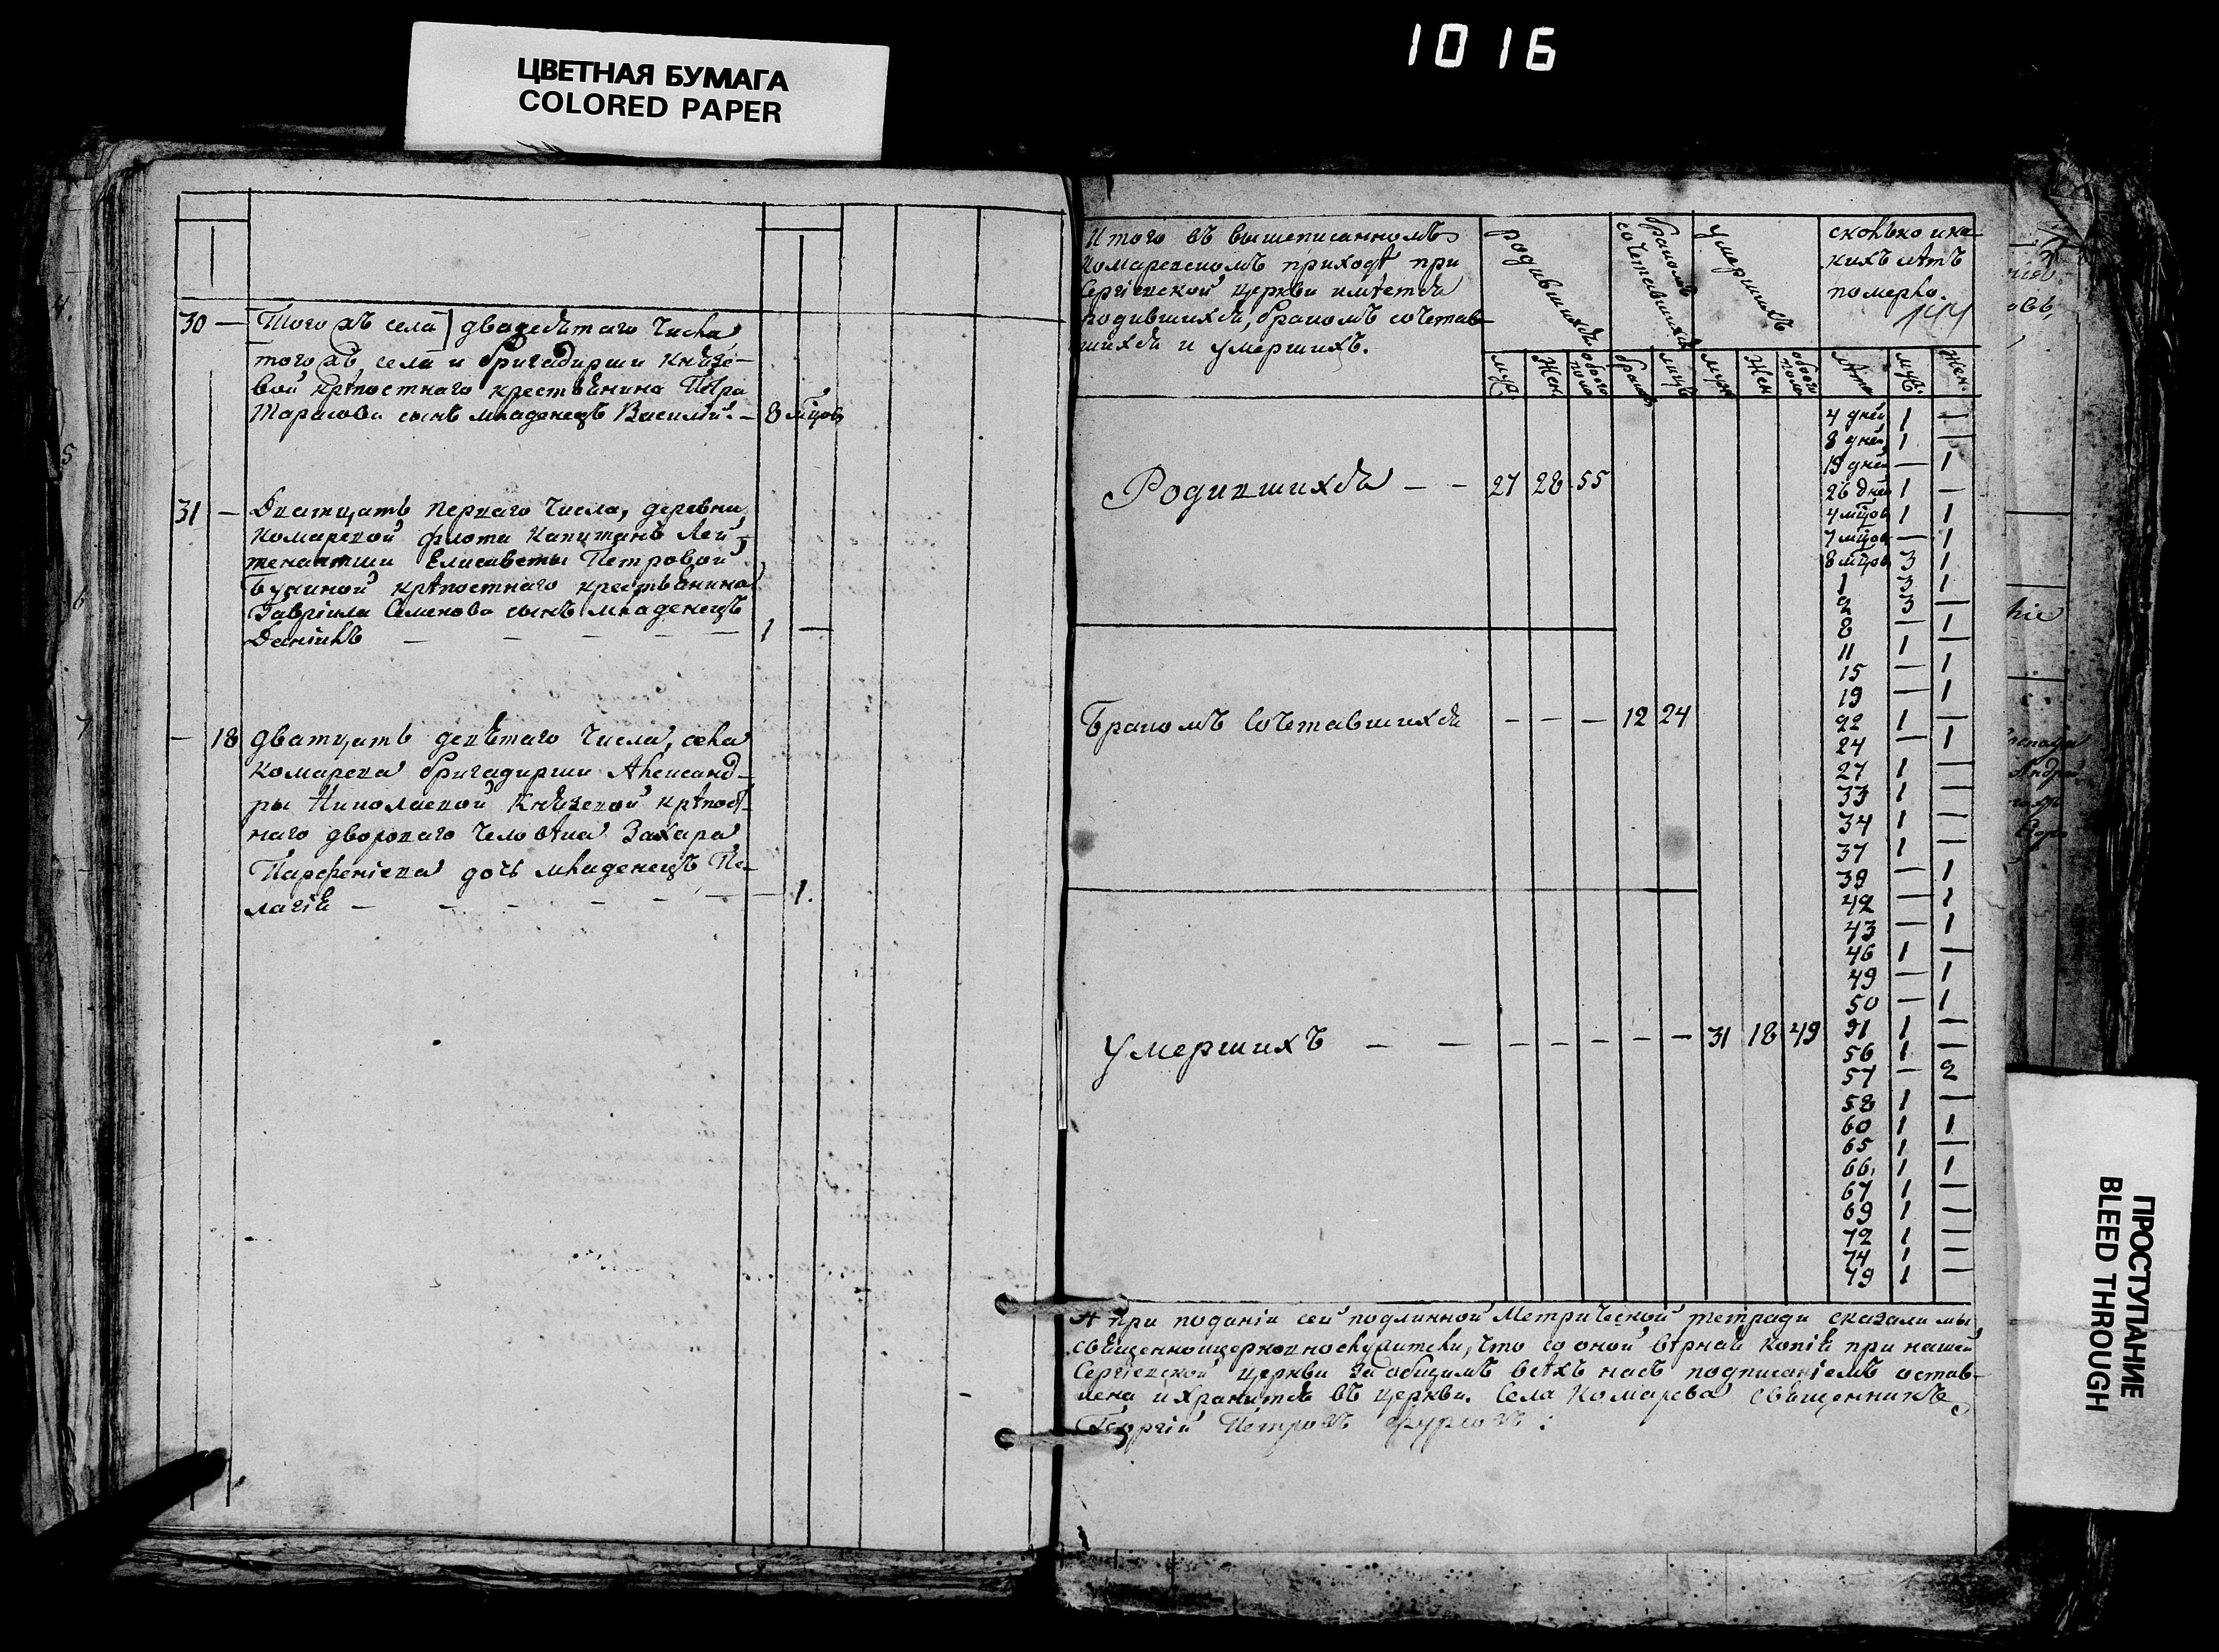 1016
ЦВЕТНАЯ БУМАГА
COLORED PAPER
30 — Того жъ села двадесѧтаго числа
того жъ села и бригадирши Князе-
вой крѣпостнаго крестьянина Петра
Тарасова сынъ младенецъ Василій. — 8 мцов
31 — Дватцать перваго числа, деревни
Комаревой флота Капитанъ Лей-
тенантши Елисаветы Петровой
Буниной крѣпостнаго крестьянина
Гавріила Семенова сынъ младенецъ
Даніилъ — — — — — 1 —
— 18 дватцать девѧтаго числа, села
Комарева бригадирши Александ-
ры Николаевой Князевой крѣпост-
наго двороваго человѣка Захара
Парфеніева дочь младенецъ Пе-
лагія — — — — — — 1.
Итого въ вышеписанномъ
Комаревскомъ приходѣ при
Сергіевской церкви имѣетсѧ
родившихсѧ, бракомъ сочетав-
шихсѧ и умершихъ.
родившихсѧ
бракомъ сочетавшихсѧ
умершихъ
сколько и ка-
кихъ лѣтъ
померло.
муж Жен обоего пола браковъ лицъ муж Жен обоего пола Лѣта муж. Жен.
Родившихсѧ — — 27 28 55
Бракомъ Сочетавшихсѧ — — — 12 24
Умершихъ — — — — — — — 31 18 49
4 дней 1 —
8 дней 1 —
15 дней — 1
26 дней 1 —
4 мцов 1 1
7 мцов — 1
8 мцов 3 1
1 3 1
2 3 —
8 — 1
11 1 —
15 — 1
19 — 1
22 1 —
24 — 1
27 1 —
33 1 —
34 1 —
37 1 —
39 — 1
42 — 1
43 — 1
46 1 —
49 — 1
50 — 1
51 1 —
56 1 —
57 — 2
58 1 —
60 1 1
65 1 —
66 1 1
67 1 —
69 1 —
72 1 —
74 1 —
79 1 —
А при поданіи сей подлинной Метрической тетради сказали мы
священноцерковнослужители, что со оной вѣрная копія при нашей
Сергіевской церкви за общимъ всѣхъ насъ подписаніемъ остав-
лена и хранится въ церкви. Села Комарева священникъ
Георгій Петровъ
ПРОСТУПАНИЕ
BLEED THROUGH